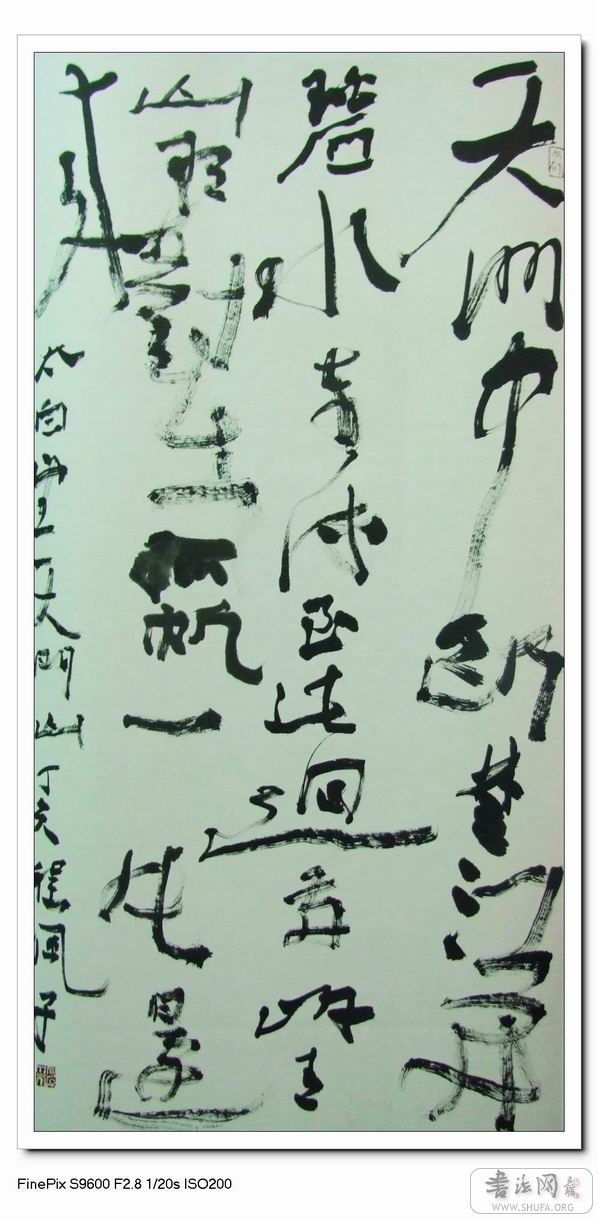 天門中断楚江開
碧水東流至此迴兩岸青
山相對出孤帆一片日邊
來
太白望天門山丁亥程風子
FinePix S9600 F2.8 1/20s ISO200
書法网
WWW.SHUFA.ORG